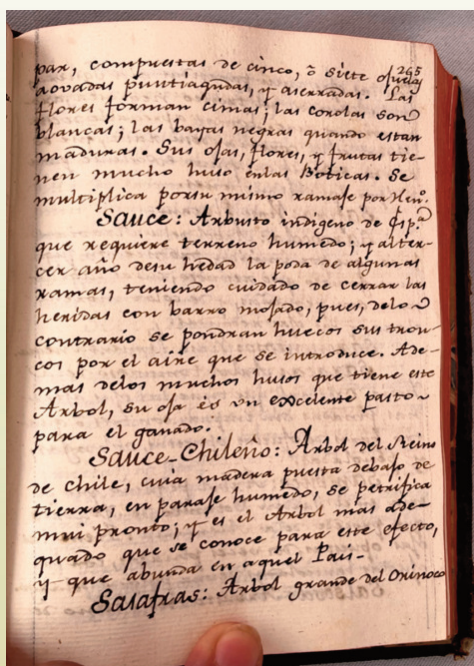 265
par, compuestas de cinco, ò siete ojuelas
aovadas puntiagudas, y aserradas. Las
flores forman cimas; las corolas son
blancas; las bayas negras quando estan
maduras. Sus ojas, flores, y frutas tie-
nen mucho huso enlas Boticas. Se
multiplica porsu mismo ramaje por Hen.º
Sauce: Arbusto indigeno de Esp.ª
que requiere terreno humedo; y alter-
cer año desu hedad la poda de algunas
ramas, teniendo cuidado de cerrar las
heridas con barro mojado, pues, delo
contrario se pondran huecos sus tron-
cos por el aire que se introduce. Ade-
mas delos muchos husos que tiene este
Arbol, su oja és un excelente pasto
para el ganado.
Sauce-Chileño: Arbol del Reino
de chile, cuia madera puesta debajo de
tierra, en paraje humedo, se petrifica
mui pronto; y es el Arbol mas ade-
quado que se conoce para este efecto,
y que abunda en aquel Pais-
Sasafras: Arbol grande del Orinoco